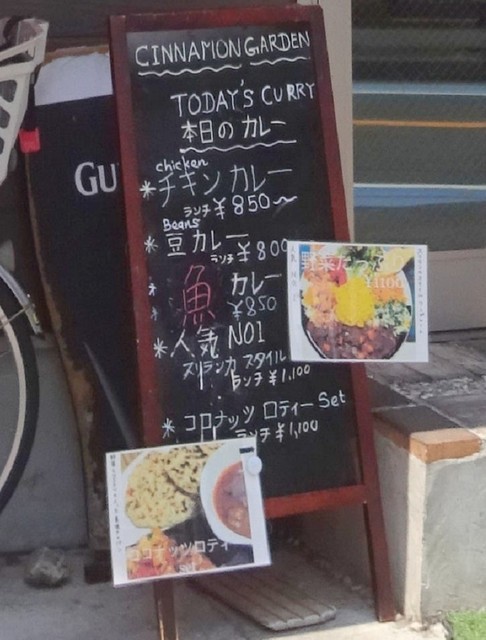 CINNAMON GARDEN
TODAY'S CURRY
本日の カレー
chicken
*チキン カレー
ランチ ¥850〜
Beans
*豆カレー
ランチ ¥800
魚 カレー
¥850
*人気 NO1
スリランカ スタイル
ランチ ¥1,100
*ココナッツ ロティー Set
ランチ ¥1,100
GU
野菜たっぷり
¥1100
ココナッツロティ